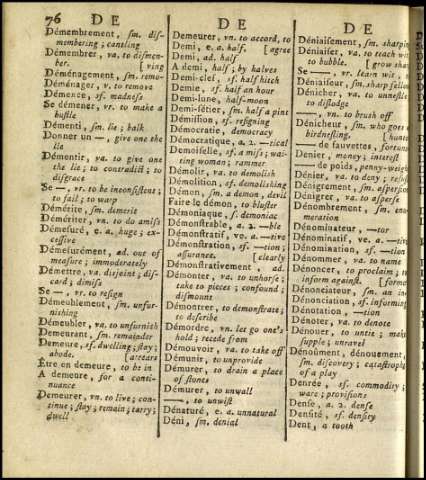 76 DE DE DE
Démembrement, ſm. diſ-
membering; cantling
Démembrer, va. to diſmem-
ber. [ving
Déménagement, ſm. remo-
Déménager, v. to remove
Démence, ſf. madneſs
Se démener, vr. to make a
buſtle
Démenti, ſm. lie; balk
Donner un —, give one the
lie
Démentir, va. to give one
the lie; to contradict; to
diſgrace
Se —, vr. to be inconſiſtent;
to fail; to warp
Démérite, ſm. demerit
Démériter, vn. to do amiſs
Démeſuré, e. a. huge; ex-
ceſſive
Démeſurément, ad. out of
meaſure; immoderately
Démettre, va. disjoint; diſ-
card; dimiſs
Se —, vr. to reſign
Démeublement, ſm. unfur-
niſhing
Démeubler, va. to unfurniſh
Demeurant, ſm. remainder
Demeure, ſf. dwelling; ſtay;
abode. [arrears
Être en demeure, to be in
A demeure, for a conti-
nuance
Demeurer, vn. to live; con-
tinue; ſtay; remain; tarry;
dwell
Demeurer, vn. to accord, to
Demi, e. a. half. [agree
Demi, ad. half
A demi, half; by halves
Demi-clef, ſf. half hitch
Demie, ſf. half an hour
Demi-lune, half-moon
Demi-ſétier, ſm. half a pint
Démiſſion, ſf. reſigning
Démocratie, democracy
Démocratique, a. 2. —tical
Demoiſelle, ſf. a miſs; wai-
ting woman; rammer
Démolir, va. to demoliſh
Démolition, ſf. demoliſhing
Démon, ſm. a demon, devil
Faire le démon, to bluſter
Démoniaque, ſ. demoniac
Démonſtrable, a. 2. —ble
Démonſtratif, ve. a. —tive
Démonſtration, ſf. —tion;
aſſurance. [clearly
Démonſtrativement, ad.
Démonter, va. to unhorſe;
take to pieces; confound;
diſmount
Démontrer, to demonſtrate;
to deſcribe
Démordre, vn. let go one's
hold; recede from
Démouvoir, va. to take off
Démunir, to unprovide
Démurer, to drain a place
of ſtones
Démurer, to unwall
—, to unwiſt
Dénaturé, e. a. unnatural
Déni, ſm. denial
Déniaiſement, ſm. ſharpin
Déniaiſer, va. to teach wit
to bubble. [grow ſhar
Se —, vr. learn wit,
Déniaiſeur, ſm. ſharp fello
Dénicher, va. to unneſtl
to diſlodge
—, vn. to bruſh off
Dénicheur, ſm. who goes
birdneſting. [hunt
— de fauvettes, fortune
Denier, money; intereſt
— de poids, penny-weigh
Dénier, va. to deny; refuſ
Dénigrement, ſm. aſperſion
Dénigrer, va. to aſperſe
Dénombrement, ſm. enu-
meration
Dénominateur, —tor
Dénominatif, ve. a. —tive
Dénomination, ſf. —tion
Dénommer, va. to name
Dénoncer, to proclaim; to
inform againſt. [former
Dénonciateur, ſm. an in-
Dénonciation, ſf. informing
Dénotation, —tion
Dénoter, va. to denote
Dénouer, to untie; make
ſupple; unravel
Dénoûment, dénouement,
ſm. diſcovery; cataſtrophe
of a play
Denrée, ſf. commodity;
ware; proviſions
Denſe, a. 2. denſe
Denſité, ſf. denſity
Dent, a tooth